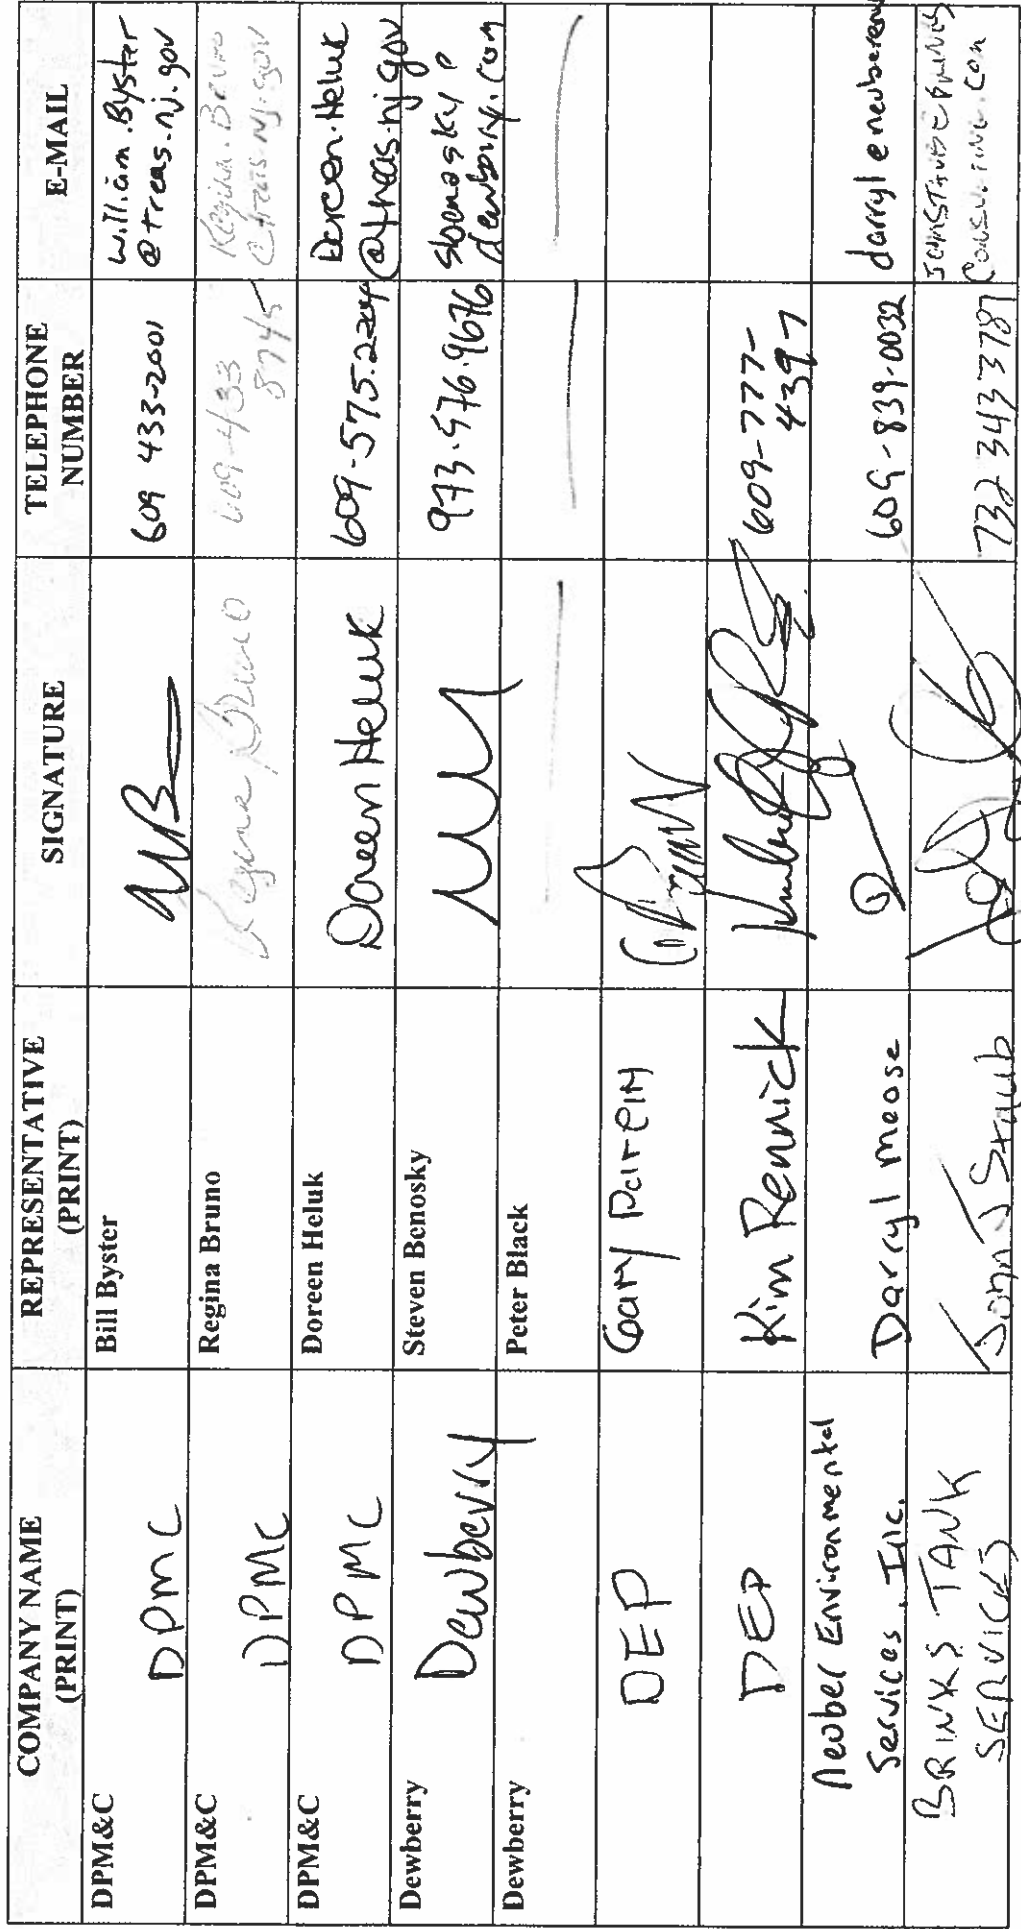 COMPANY NAME (PRINT) REPRESENTATIVE (PRINT) SIGNATURE TELEPHONE NUMBER E-MAIL
DPM&C DPMC Bill Byster WB 609 433-2001 William.Byster
@treas.nj.gov
DPM&C DPMC Regina Bruno Regina Bruno 609-433
8745 Regina.Bruno
@treas.nj.gov
DPM&C DPMC Doreen Heluk Doreen Heluk 609-575-2204 Doreen.Heluk
@treas.nj.gov
Dewberry Dewberry Steven Benosky 973.576.9676 sbenosky@
dewberry.com
Dewberry Peter Black
DEP Gary
DEP Kim Rennick 609-777-
4397
Neuber Environmental
Services, Inc. Darryl meose 609-839-0032
BRINKS TANK
SERVICES John J Staub 732 343 3787
Consulting.com